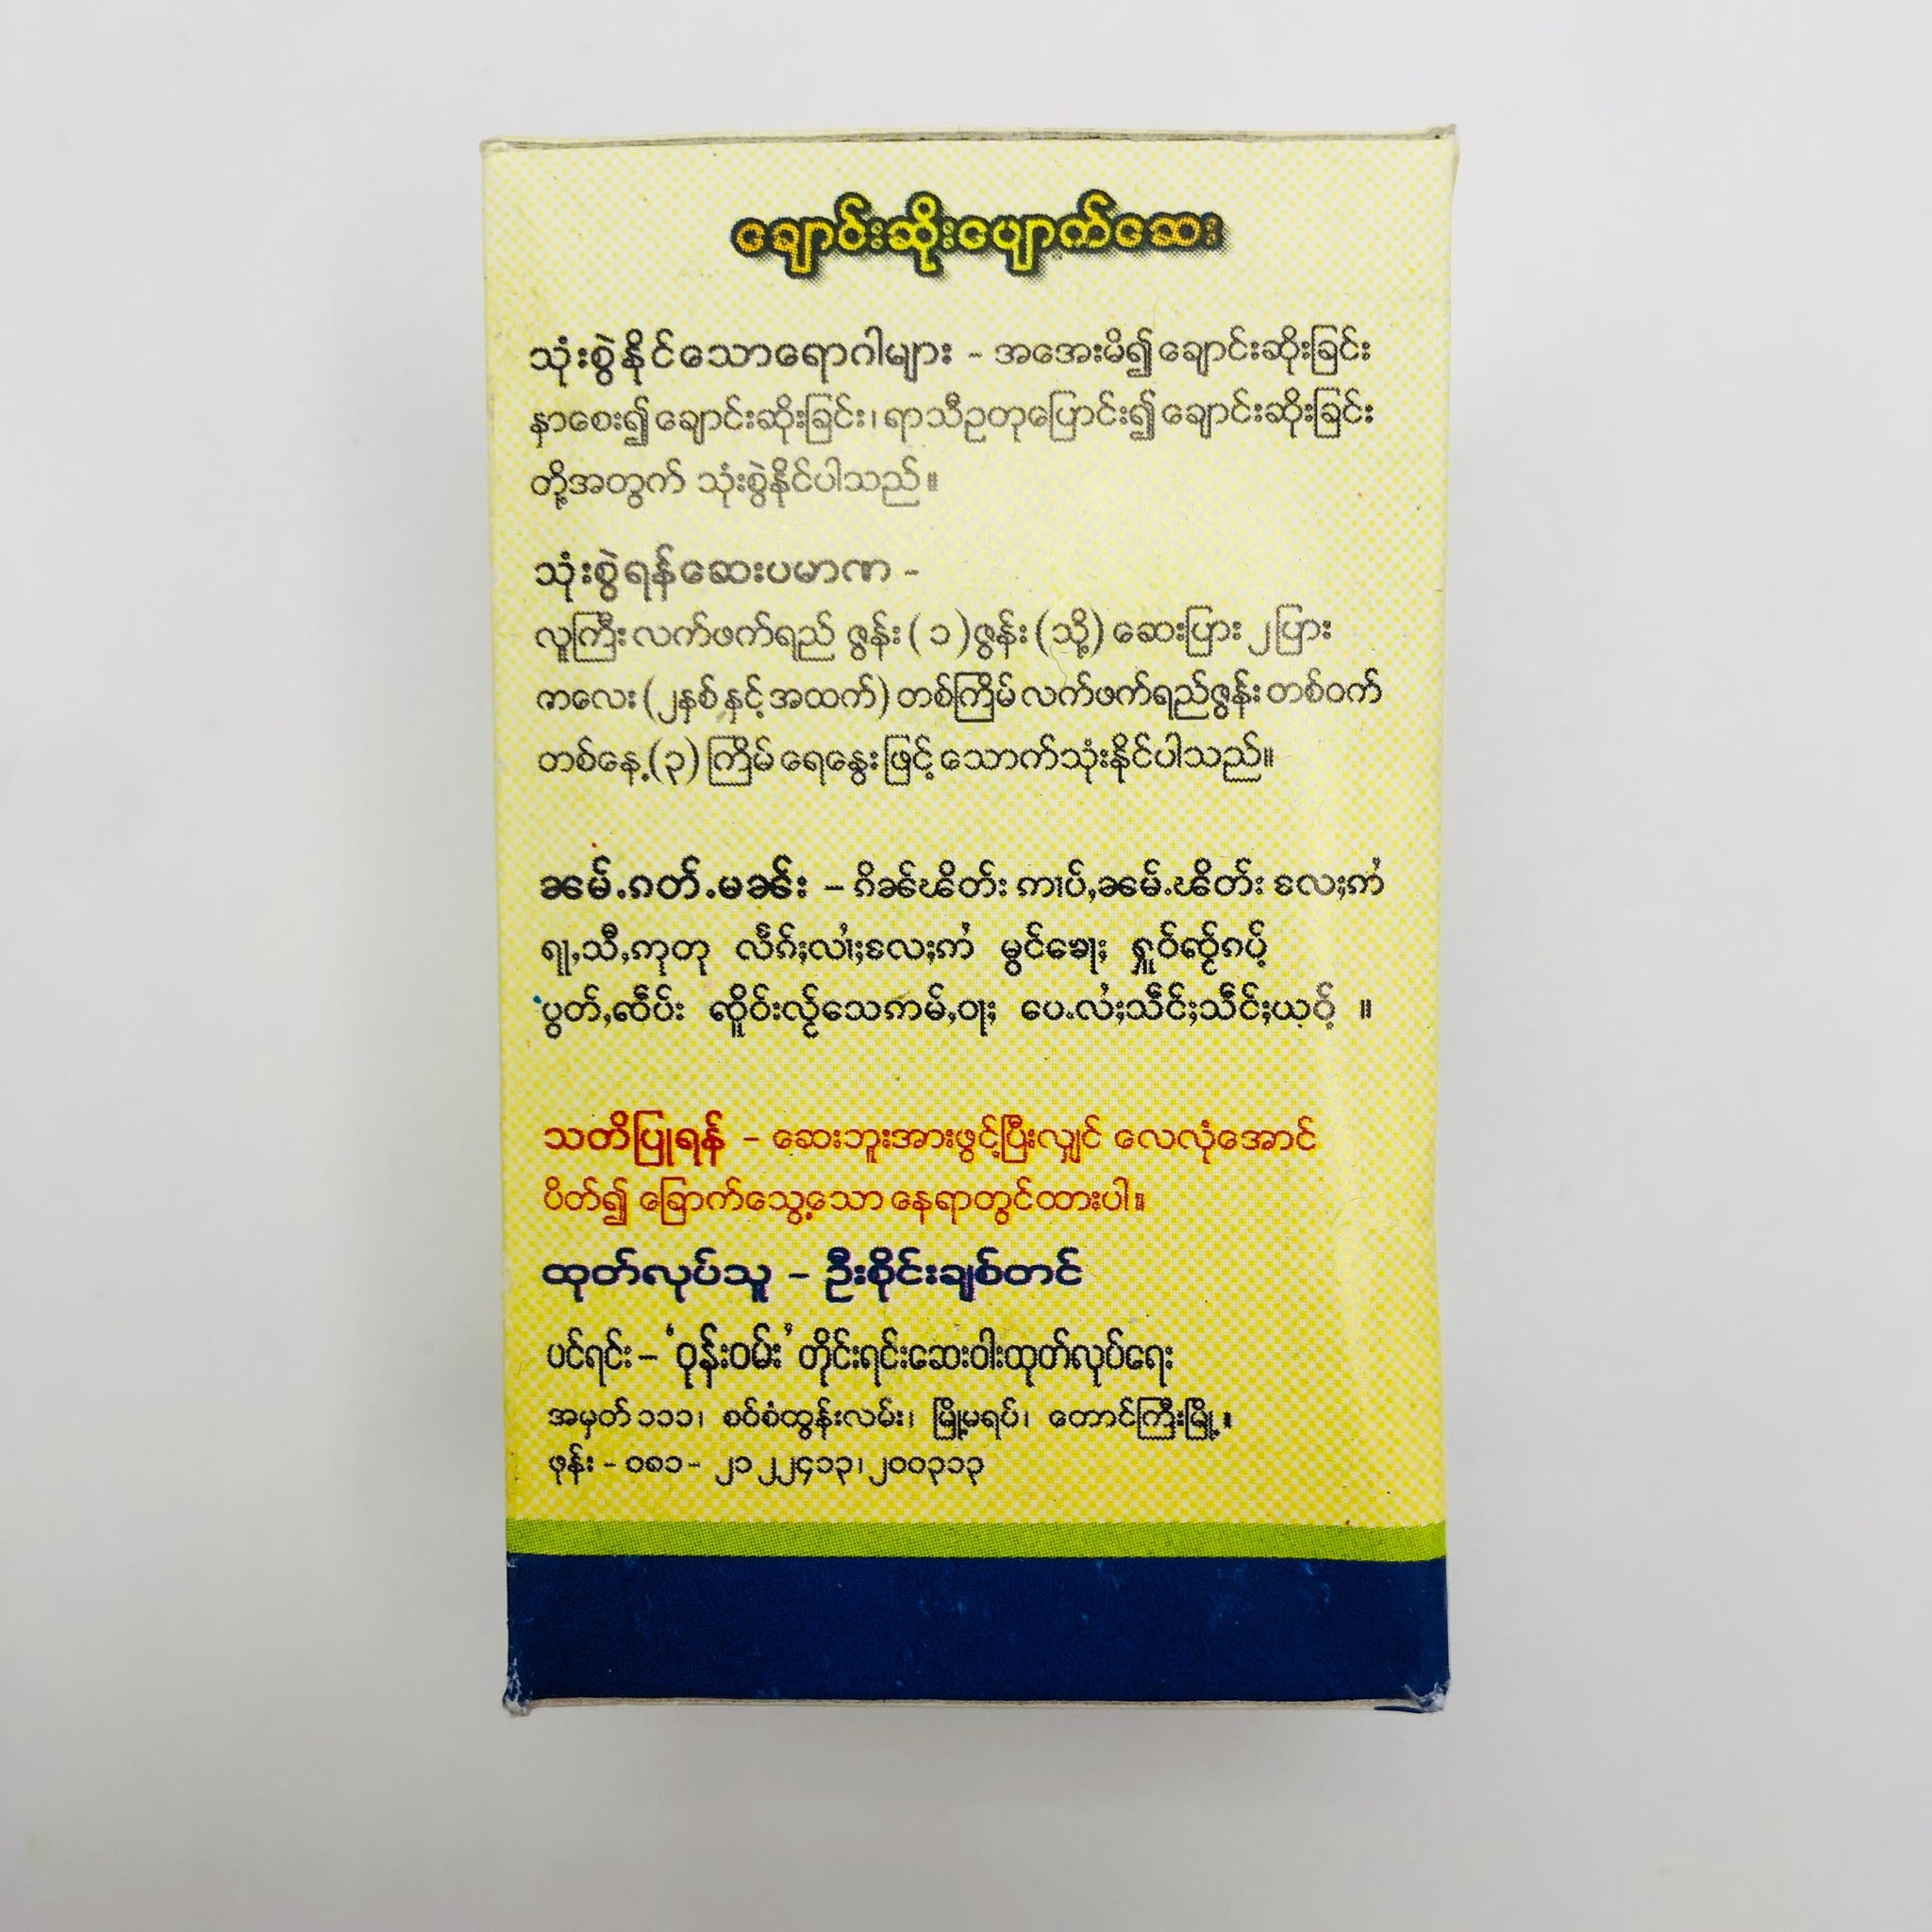 ချောင်းဆိုးပျောက်ဆေး
သုံးစွဲနိုင်သောရောဂါများ - အအေးမိ၍ချောင်းဆိုးခြင်း
နှာစေး၍ချောင်းဆိုးခြင်း၊ရာသီဥတုပြောင်း၍ချောင်းဆိုးခြင်း
တို့အတွက် သုံးစွဲနိုင်ပါသည်။
သုံးစွဲရန်ဆေးပမာဏ -
လူကြီးလက်ဖက်ရည် ဇွန်း(၁)ဇွန်း(သို့)ဆေးပြား၂ပြား
ကလေး(၂နှစ်နှင့်အထက်)တစ်ကြိမ်လက်ဖက်ရည်ဇွန်းတစ်ဝက်
တစ်နေ့(၃)ကြိမ်ရေနွေးဖြင့်သောက်သုံးနိုင်ပါသည်။
ၼမ်ႉၵတ်ႉမၼ်း –
သတိပြုရန် – ဆေးဘူးအားဖွင့်ပြီးလျှင် လေလုံအောင်
ပိတ်၍ ခြောက်သွေ့သော နေရာတွင်ထားပါ။
ထုတ်လုပ်သူ – ဦးစိုင်းချစ်တင်
ပင်ရင်း – ‘ဝုန်းဝမ်း’ တိုင်းရင်းဆေးဝါးထုတ်လုပ်ရေး
အမှတ်၁၁၁၊ စဝ်စံထွန်းလမ်း၊ မြို့မရပ်၊ တောင်ကြီးမြို့။
ဖုန်း - ၀၈၁- ၂၁၂၂၄၁၃၊၂၀၀၃၁၃